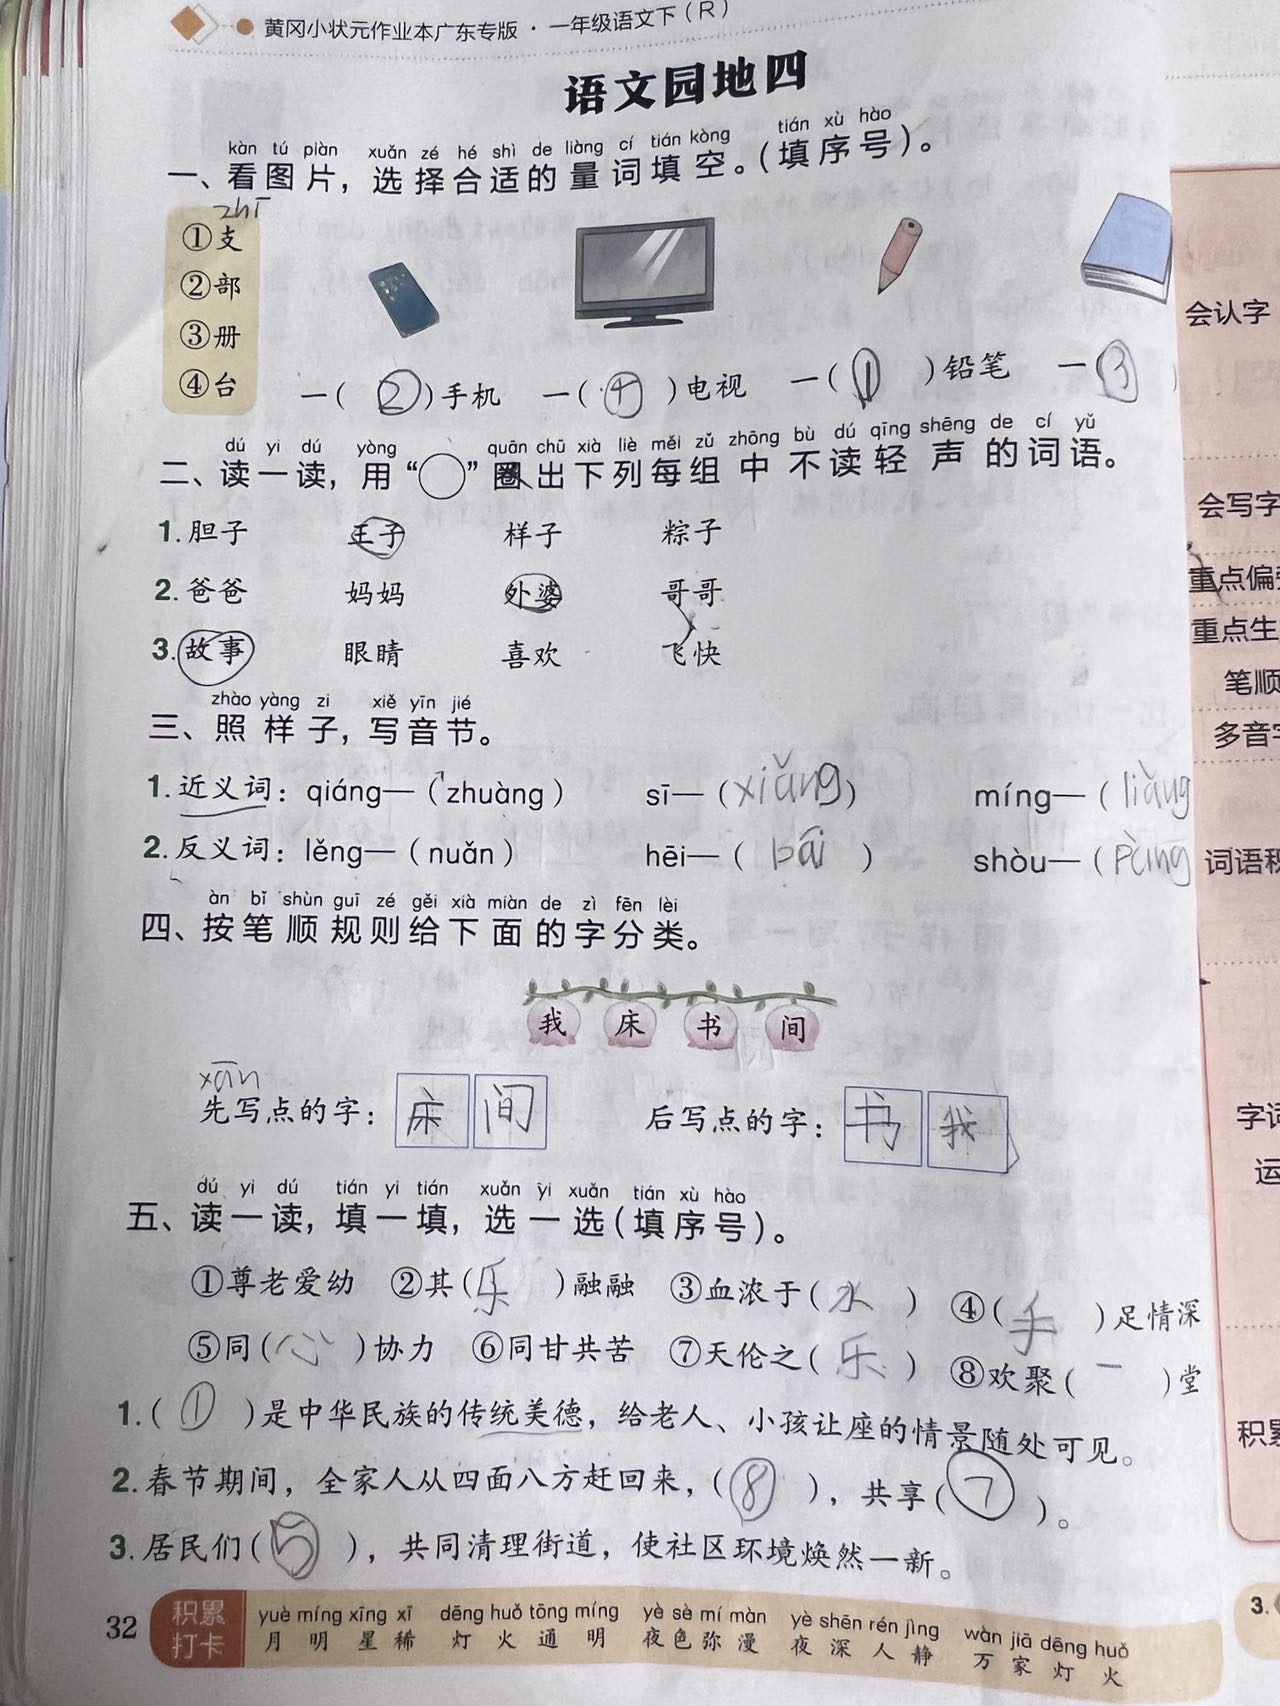 黄冈小状元作业本广东专版·一年级语文下（R）
语文园地四
kàn tú piàn xuǎn zé hé shì de liàng cí tián kòng tián xù hào
一、看图片，选择合适的量词填空。（填序号）。
zhī
①支
②部
③册
④台
一（②）手机 一（④）电视 一（①）铅笔 一（③）
dú yi dú yòng quān chū xià liè měi zǔ zhōng bù dú qīng shēng de cí yǔ
二、读一读，用“○”圈出下列每组中不读轻声的词语。
1.胆子 王子 样子 粽子
2.爸爸 妈妈 外婆 哥哥
3.故事 眼睛 喜欢 飞快
zhào yàng zi xiě yīn jié
三、照样子，写音节。
1.近义词：qiáng—（zhuàng） sī—（xiǎng） míng—（liàng
2.反义词：lěng—（nuǎn） hēi—（bái） shòu—（pàng
àn bǐ shùn guī zé gěi xià miàn de zì fēn lèi
四、按笔顺规则给下面的字分类。
我 床 书 间
xān
先写点的字：床 间 后写点的字：书 我
dú yi dú tián yi tián xuǎn yi xuǎn tián xù hào
五、读一读，填一填，选一选（填序号）。
①尊老爱幼 ②其（乐）融融 ③血浓于（水） ④（手）足情深
⑤同（心）协力 ⑥同甘共苦 ⑦天伦之（乐） ⑧欢聚（一）堂
1.（①）是中华民族的传统美德，给老人、小孩让座的情景随处可见。
2.春节期间，全家人从四面八方赶回来，（⑧），共享（⑦）。
3.居民们（⑤），共同清理街道，使社区环境焕然一新。
32
积累打卡
yuè míng xīng xī dēng huǒ tōng míng yè sè mí màn yè shēn rén jìng wàn jiā dēng huǒ
月明星稀 灯火通明 夜色弥漫 夜深人静 万家灯火
会认字
会写字
重点偏
重点生
笔顺
多音字
词语积
字词
运
积累
3.